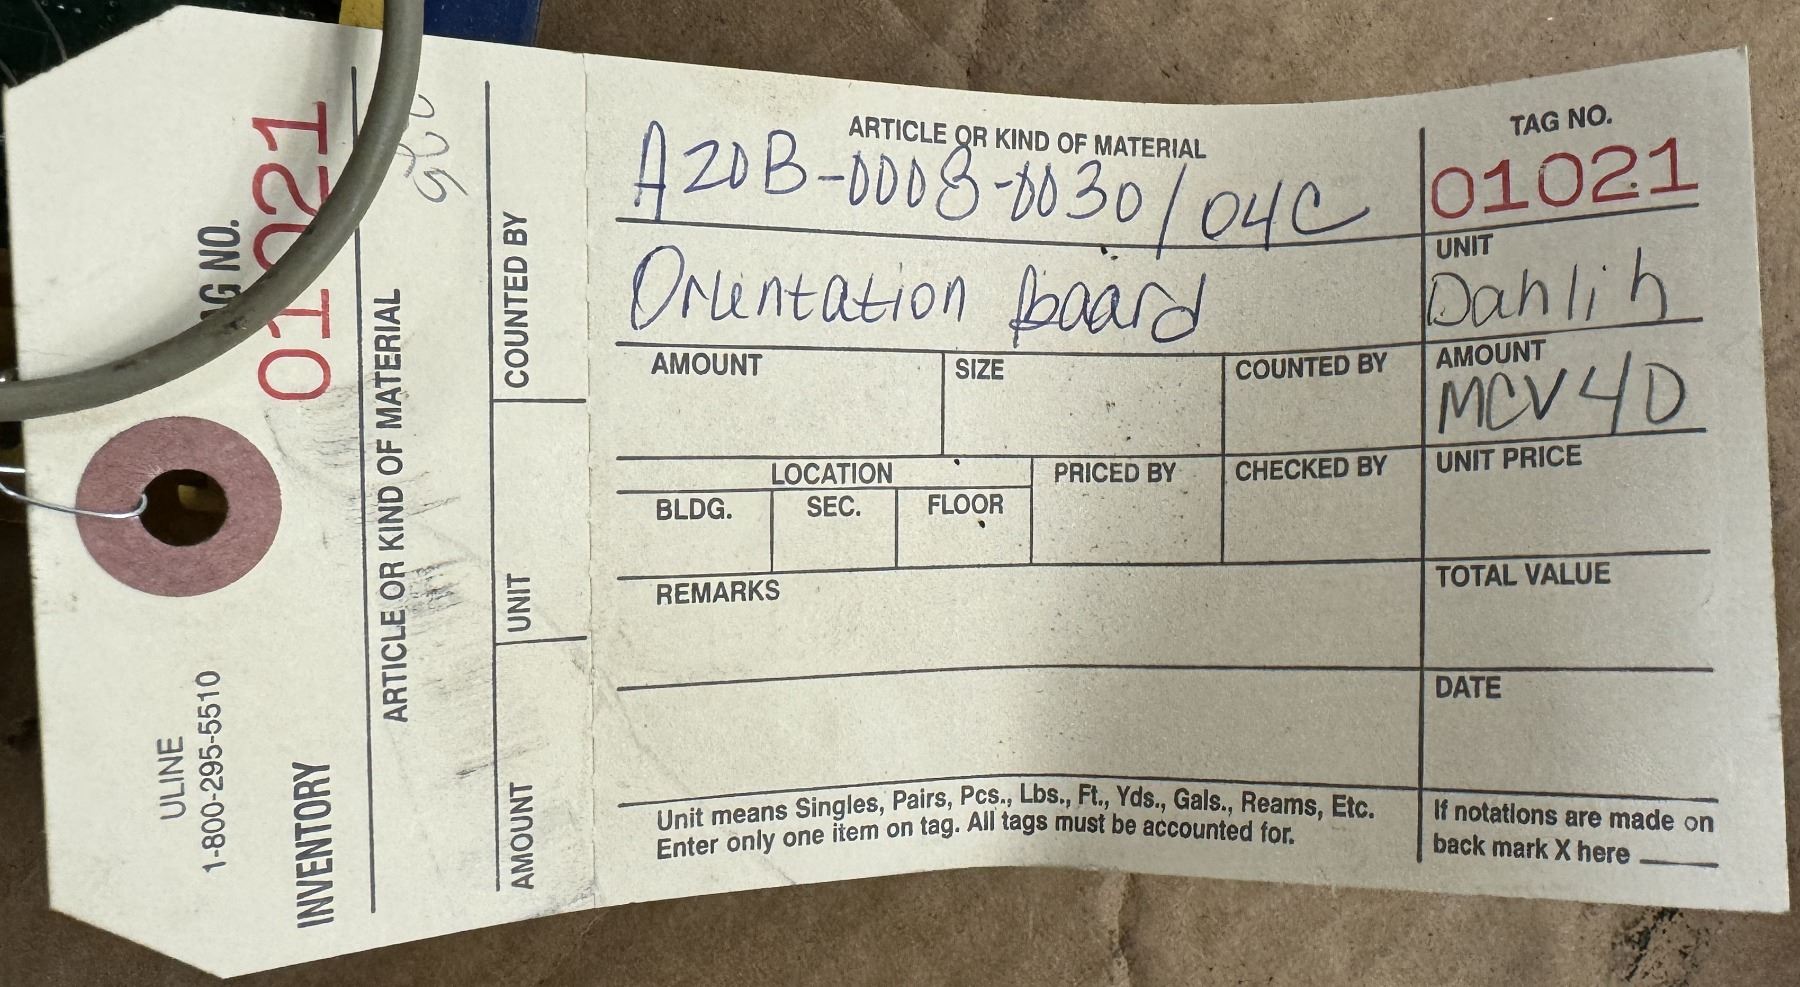 ULINE
1-800-295-5510
INVENTORY
01021
ARTICLE OR KIND OF MATERIAL
COUNTED BY
UNIT
AMOUNT
ARTICLE OR KIND OF MATERIAL
A20B-0008-0030/04C
Orientation board
TAG NO.
01021
UNIT
Dahlih
AMOUNT
MCV40
AMOUNT
SIZE
COUNTED BY
LOCATION
BLDG.
SEC.
FLOOR
PRICED BY
CHECKED BY
UNIT PRICE
REMARKS
TOTAL VALUE
DATE
Unit means Singles, Pairs, Pcs., Lbs., Ft., Yds., Gals., Reams, Etc.
Enter only one item on tag. All tags must be accounted for.
If notations are made on
back mark X here